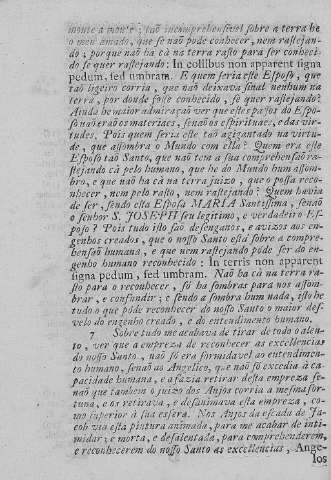 monte a monte; taõ incomprehensivel sobre a terra he
o meu amado, que se naõ pode conhecer, nem rastejan-
do; porque naõ ha cà na terra rasto para ser conheci-
do se quer rastejando: In collibus non apparent signa
pedum, sed umbram. E quem seria este Esposo, que
taõ ligeiro corria, que naõ deixava sinal nenhum na
terra, por donde fosse conhecido, se quer rastejando?
Ainda he maior admiraçaõ ver que estes passos do Espo-
so naõ eraõ os materiaes, senaõ os espirituaes, e das vir-
tudes. Pois quem seria este taõ agigantado na virtu-
de, que assombra o Mundo com ella? Quem era este
Esposo taõ Santo, que naõ tem a sua comprehensaõ ras-
tejando cà pelo humano, que he do Mundo hum assom-
bro, e que naõ ha cà na terra juizo, que o possa reco-
nhecer, nem pelo rasto, nem rastejando? Quem havia
de ser, sendo esta Esposa MARIA Santissima, senaõ
o senhor S. JOSEPH seu legitimo, e verdadeiro Es-
poso? Pois tudo isto saõ desenganos, e avizos aos en-
genhos creados, que o nosso Santo està sobre a compre-
hensaõ humana, e que nem rastejando pode ser do en-
genho humano reconhecido: In terris non apparent
signa pedum, sed umbram. Naõ ha cà na terra ra-
sto para o reconhecer, só ha sombras para nos assom-
brar, e confundir; e sendo a sombra hum nada, isto he
tudo o que pòde reconhecer do nosso Santo o maior des-
velo do engenho creado, e do entendimento humano.
7 Sobre tudo me acabava de tirar de todo o alen-
to, ver que a empreza de reconhecer as excellencias
do nosso Santo, naõ só era formidavel ao entendimen-
to humano, senaõ ao Angelico, que naõ só excedia à ca-
pacidade humana, e a fazia retirar desta empreza se-
naõ que tambem o juizo dos Anjos corria a mesma for-
tuna, e os retirava, e desanimava esta empreza, co-
mo superior à sua esfera. Nos Anjos da escada de Ja-
cob via esta pintura animada, para me acabar de inti-
midar; e morta, e desalentada, para comprehenderem,
e reconhecerem do nosso Santo as excellencias, Ange-
los